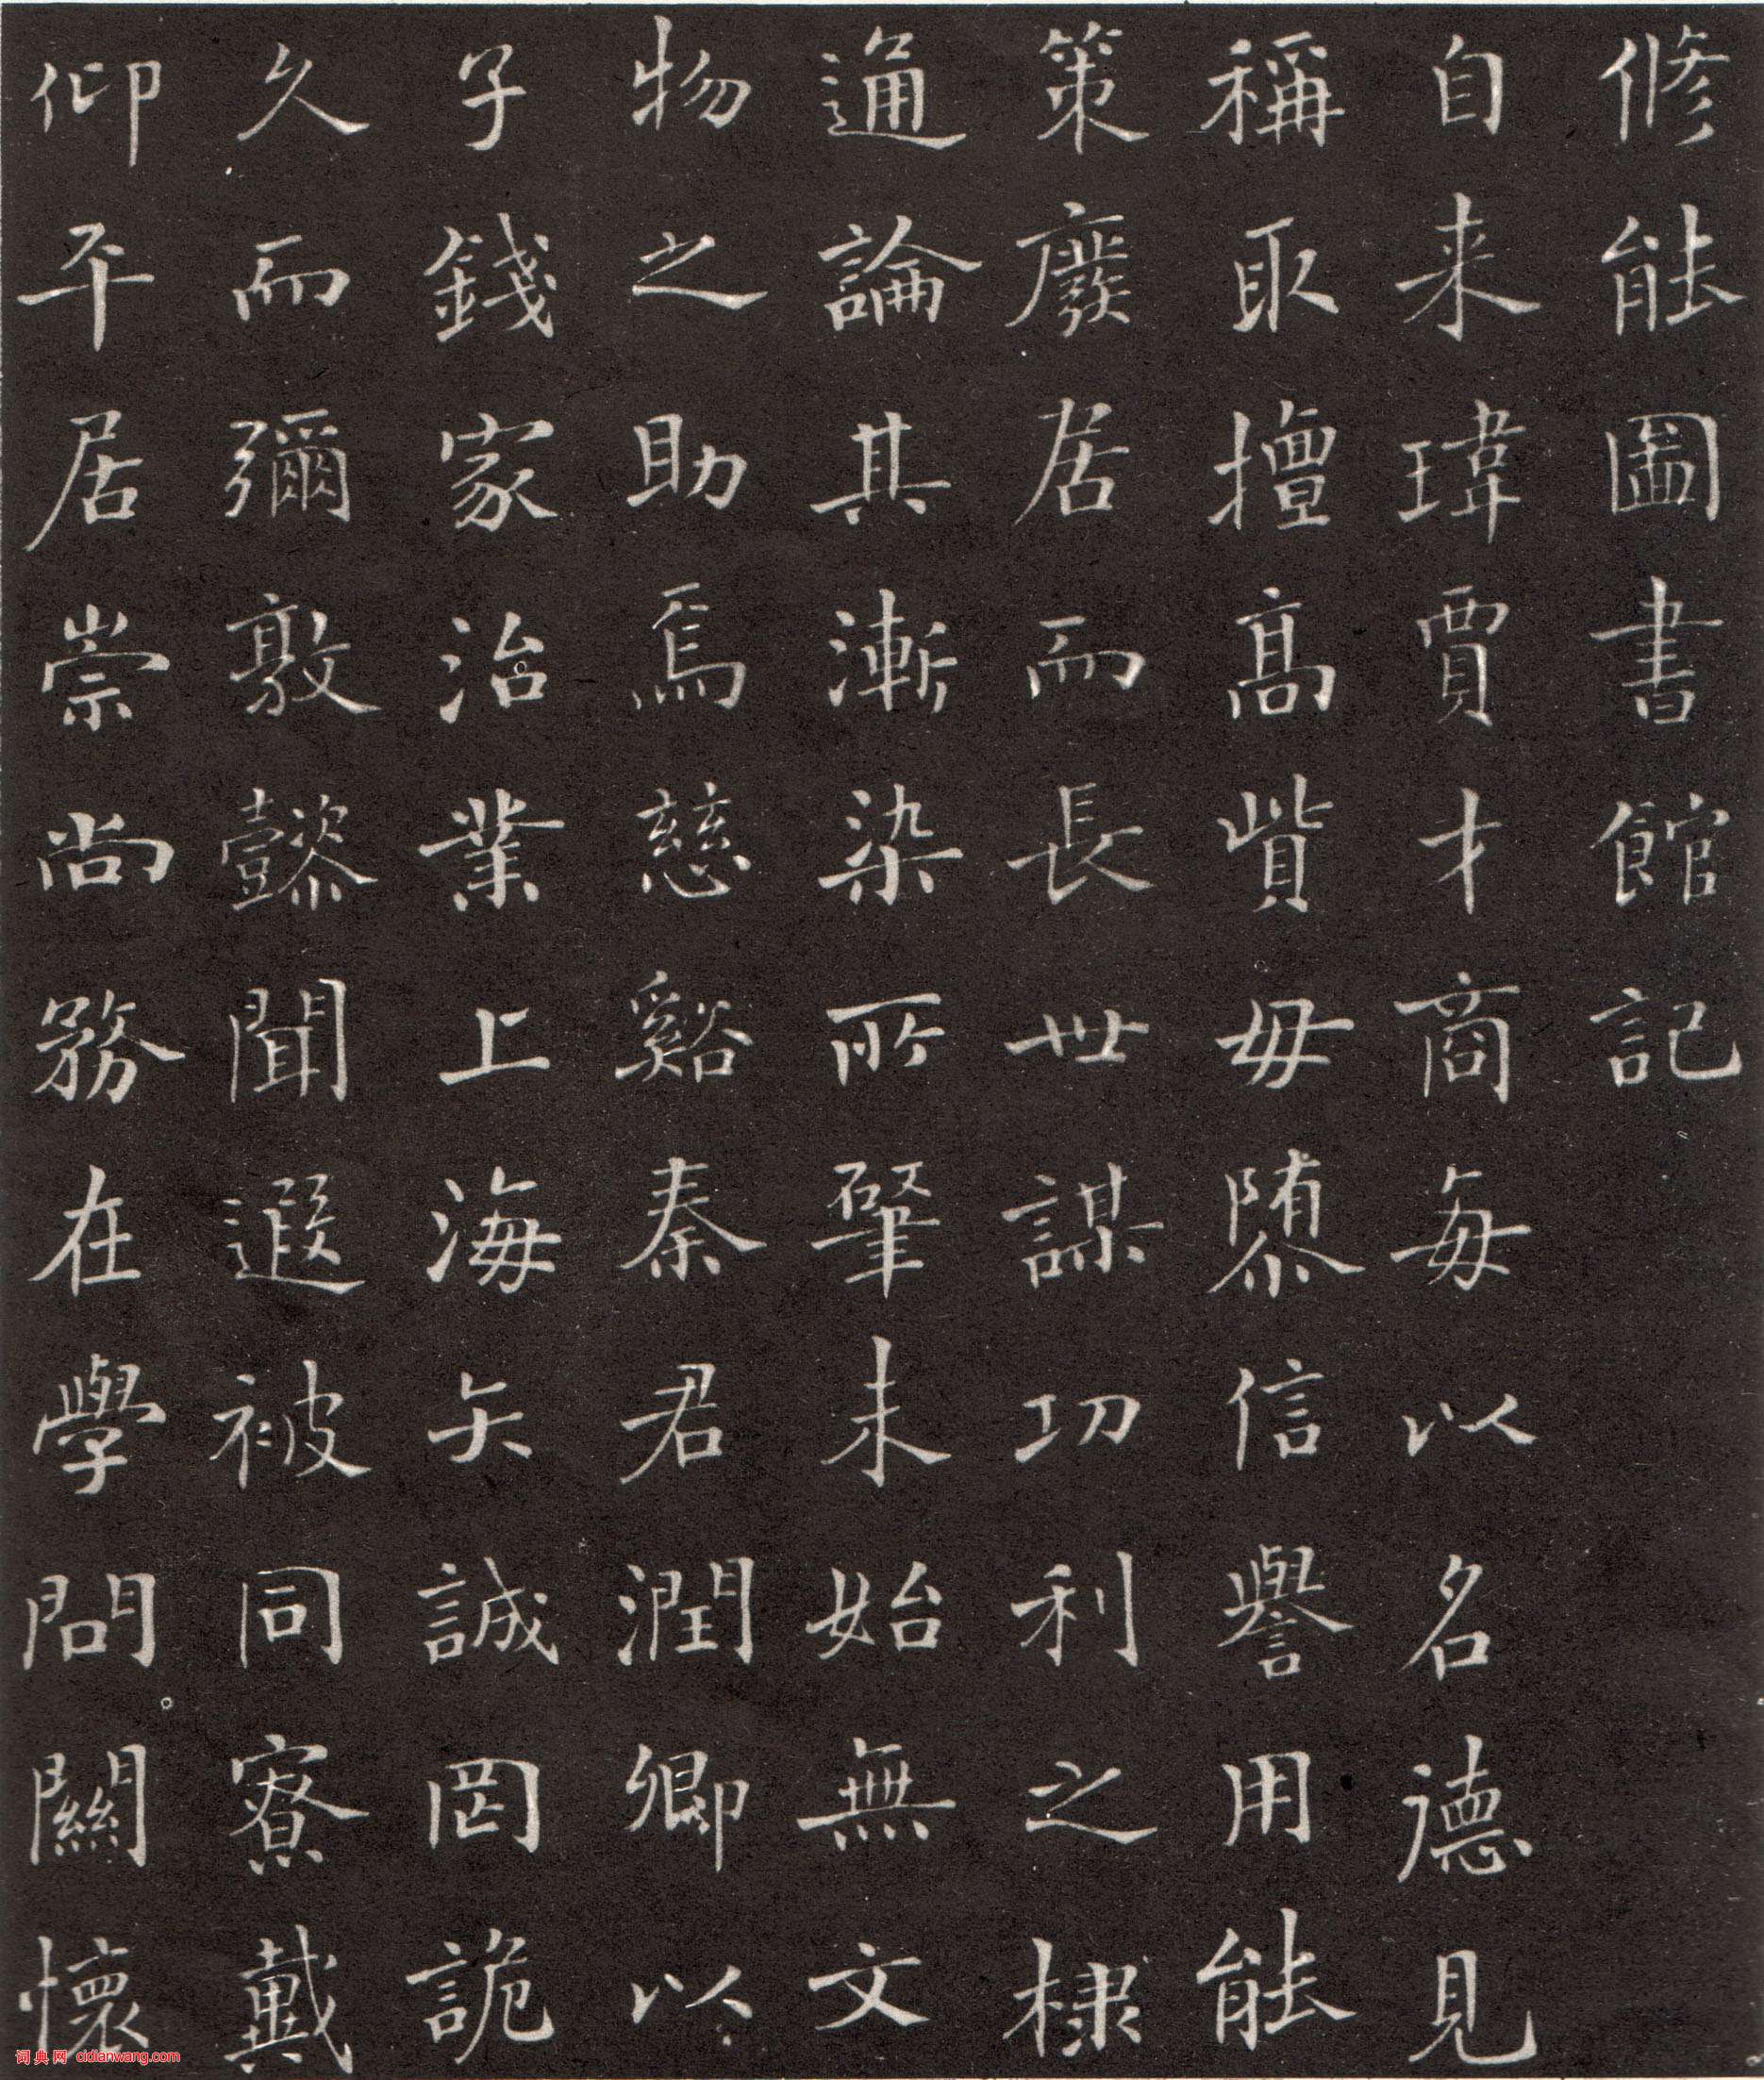 修能圖書館記
自来瑋賈才商每以名德見
稱取擅高貲毋隳信譽用能
策廢居而長世謀功利之棣
通論其漸染所肇未始無文
物之助焉慈谿秦君潤卿以
子錢家治業上海矢誠罔詭
久而彌敦懿聞遐被同寮戴
仰平居崇尚務在學問關懷
词典网 cidianwang.com